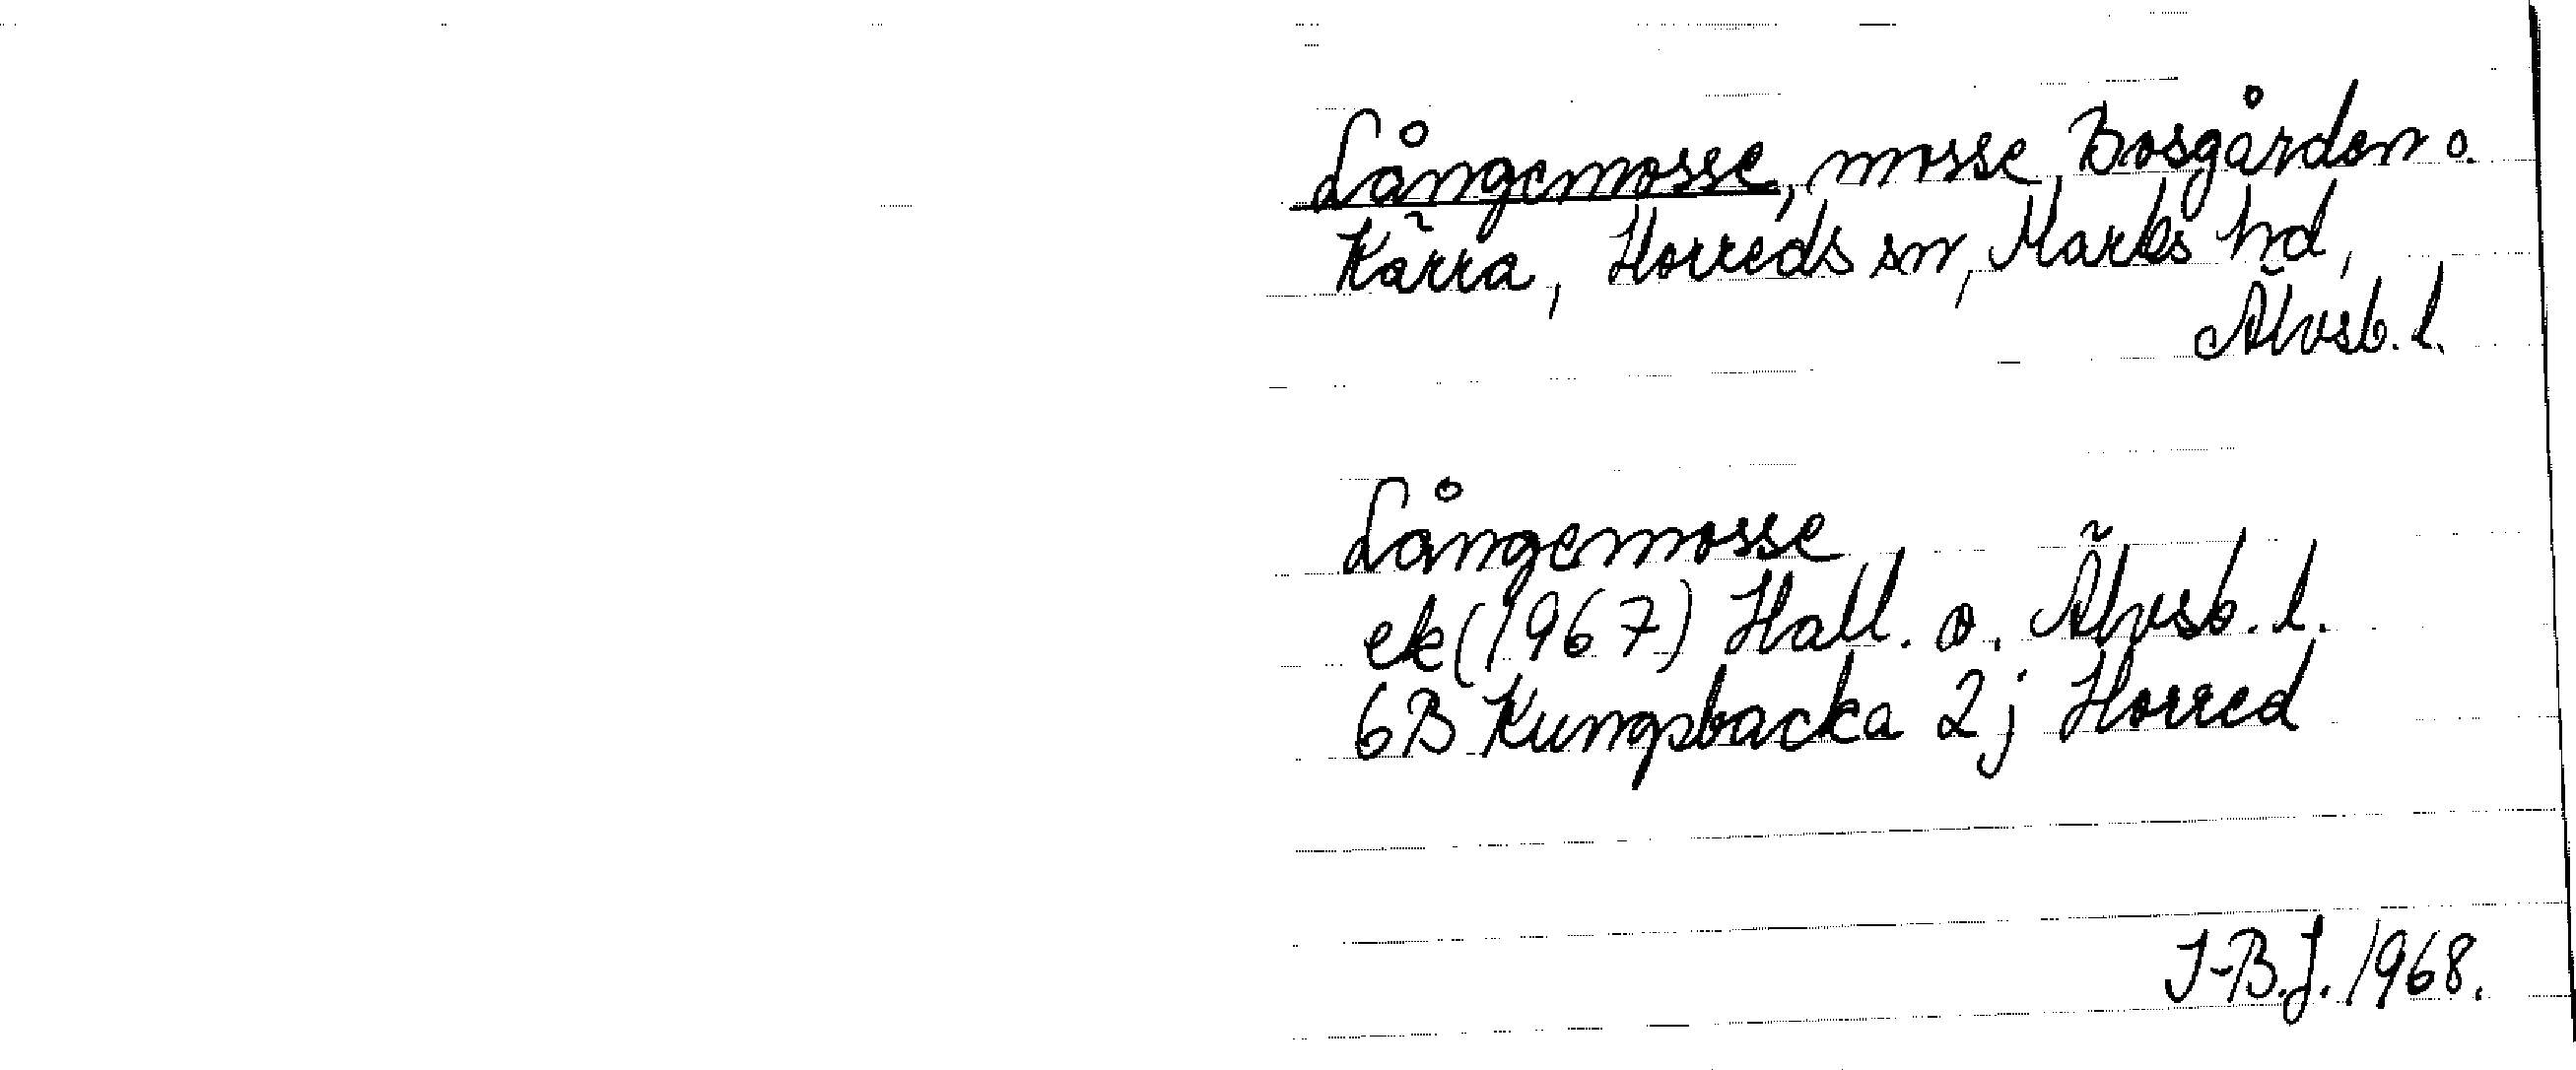 Långemosse, mosse, Bosgården o.
Kärra, Horreds sn, Marks hd,
Älvsb. l.
Långemosse
ek (1967) Hall. o. Älvsb. l.
6B Kungsbacka 2j Horred
I-B.J. 1968.